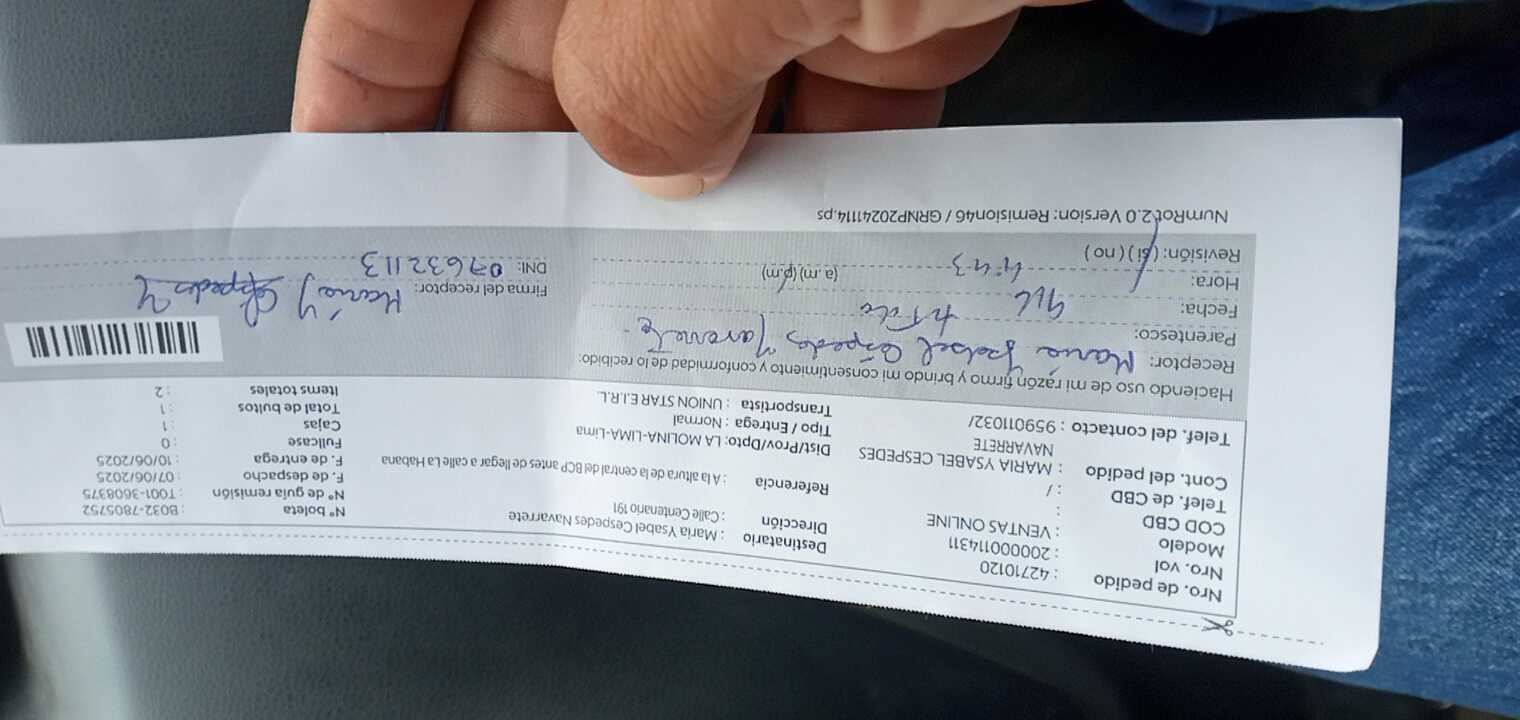 Nro. de pedido : 42710120
Nro. vol : 200000114311
Modelo : VENTAS ONLINE
COD CBD :
Telef. de CBD : /
Cont. del pedido : MARIA YSABEL CESPEDES NAVARRETE
Telef. del contacto : 959011032/
Destinatario : Maria Ysabel Cespedes Navarrete
Dirección : Calle Centenario 191
Referencia : A la altura de la central del BCP antes de llegar a calle La Habana
Dist/Prov/Dpto: LA MOLINA-LIMA-Lima
Tipo / Entrega : Normal
Transportista : UNION STAR E.I.R.L.
N° boleta : B032-7805752
N° de guía remisión : T001-3608375
F. de despacho : 07/06/2025
F. de entrega : 10/06/2025
Fullcase : 0
Cajas : 1
Total de bultos : 1
Items totales : 2
Haciendo uso de mi razón firmo y brindo mi consentimiento y conformidad de lo recibido:
Receptor: María Ysabel Céspedes Navarrete
Parentesco:
Fecha: 9/6
Hora: 4:43 (a.m) (p.m)
Revisión: (si) ( no )
Firma del receptor: María Y Céspedes
DNI: 07632113
NumRot 2.0 Version: Remision46 / GRNP20241114.ps